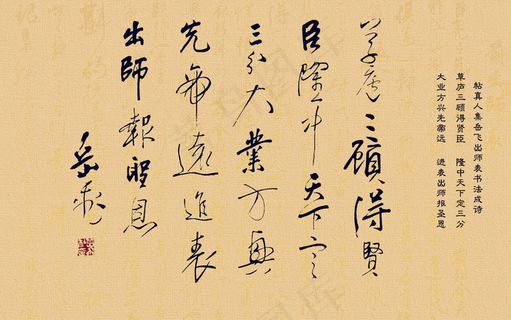 帖真人集岳飞出师表书法成诗
草庐三顾得贤臣 隆中天下定三分
大业方兴先帝远 进表出师报圣恩
草廬三顧得賢
臣隆中天下定
三分大業方興
先帝遠進表
出師報聖恩
岳飛